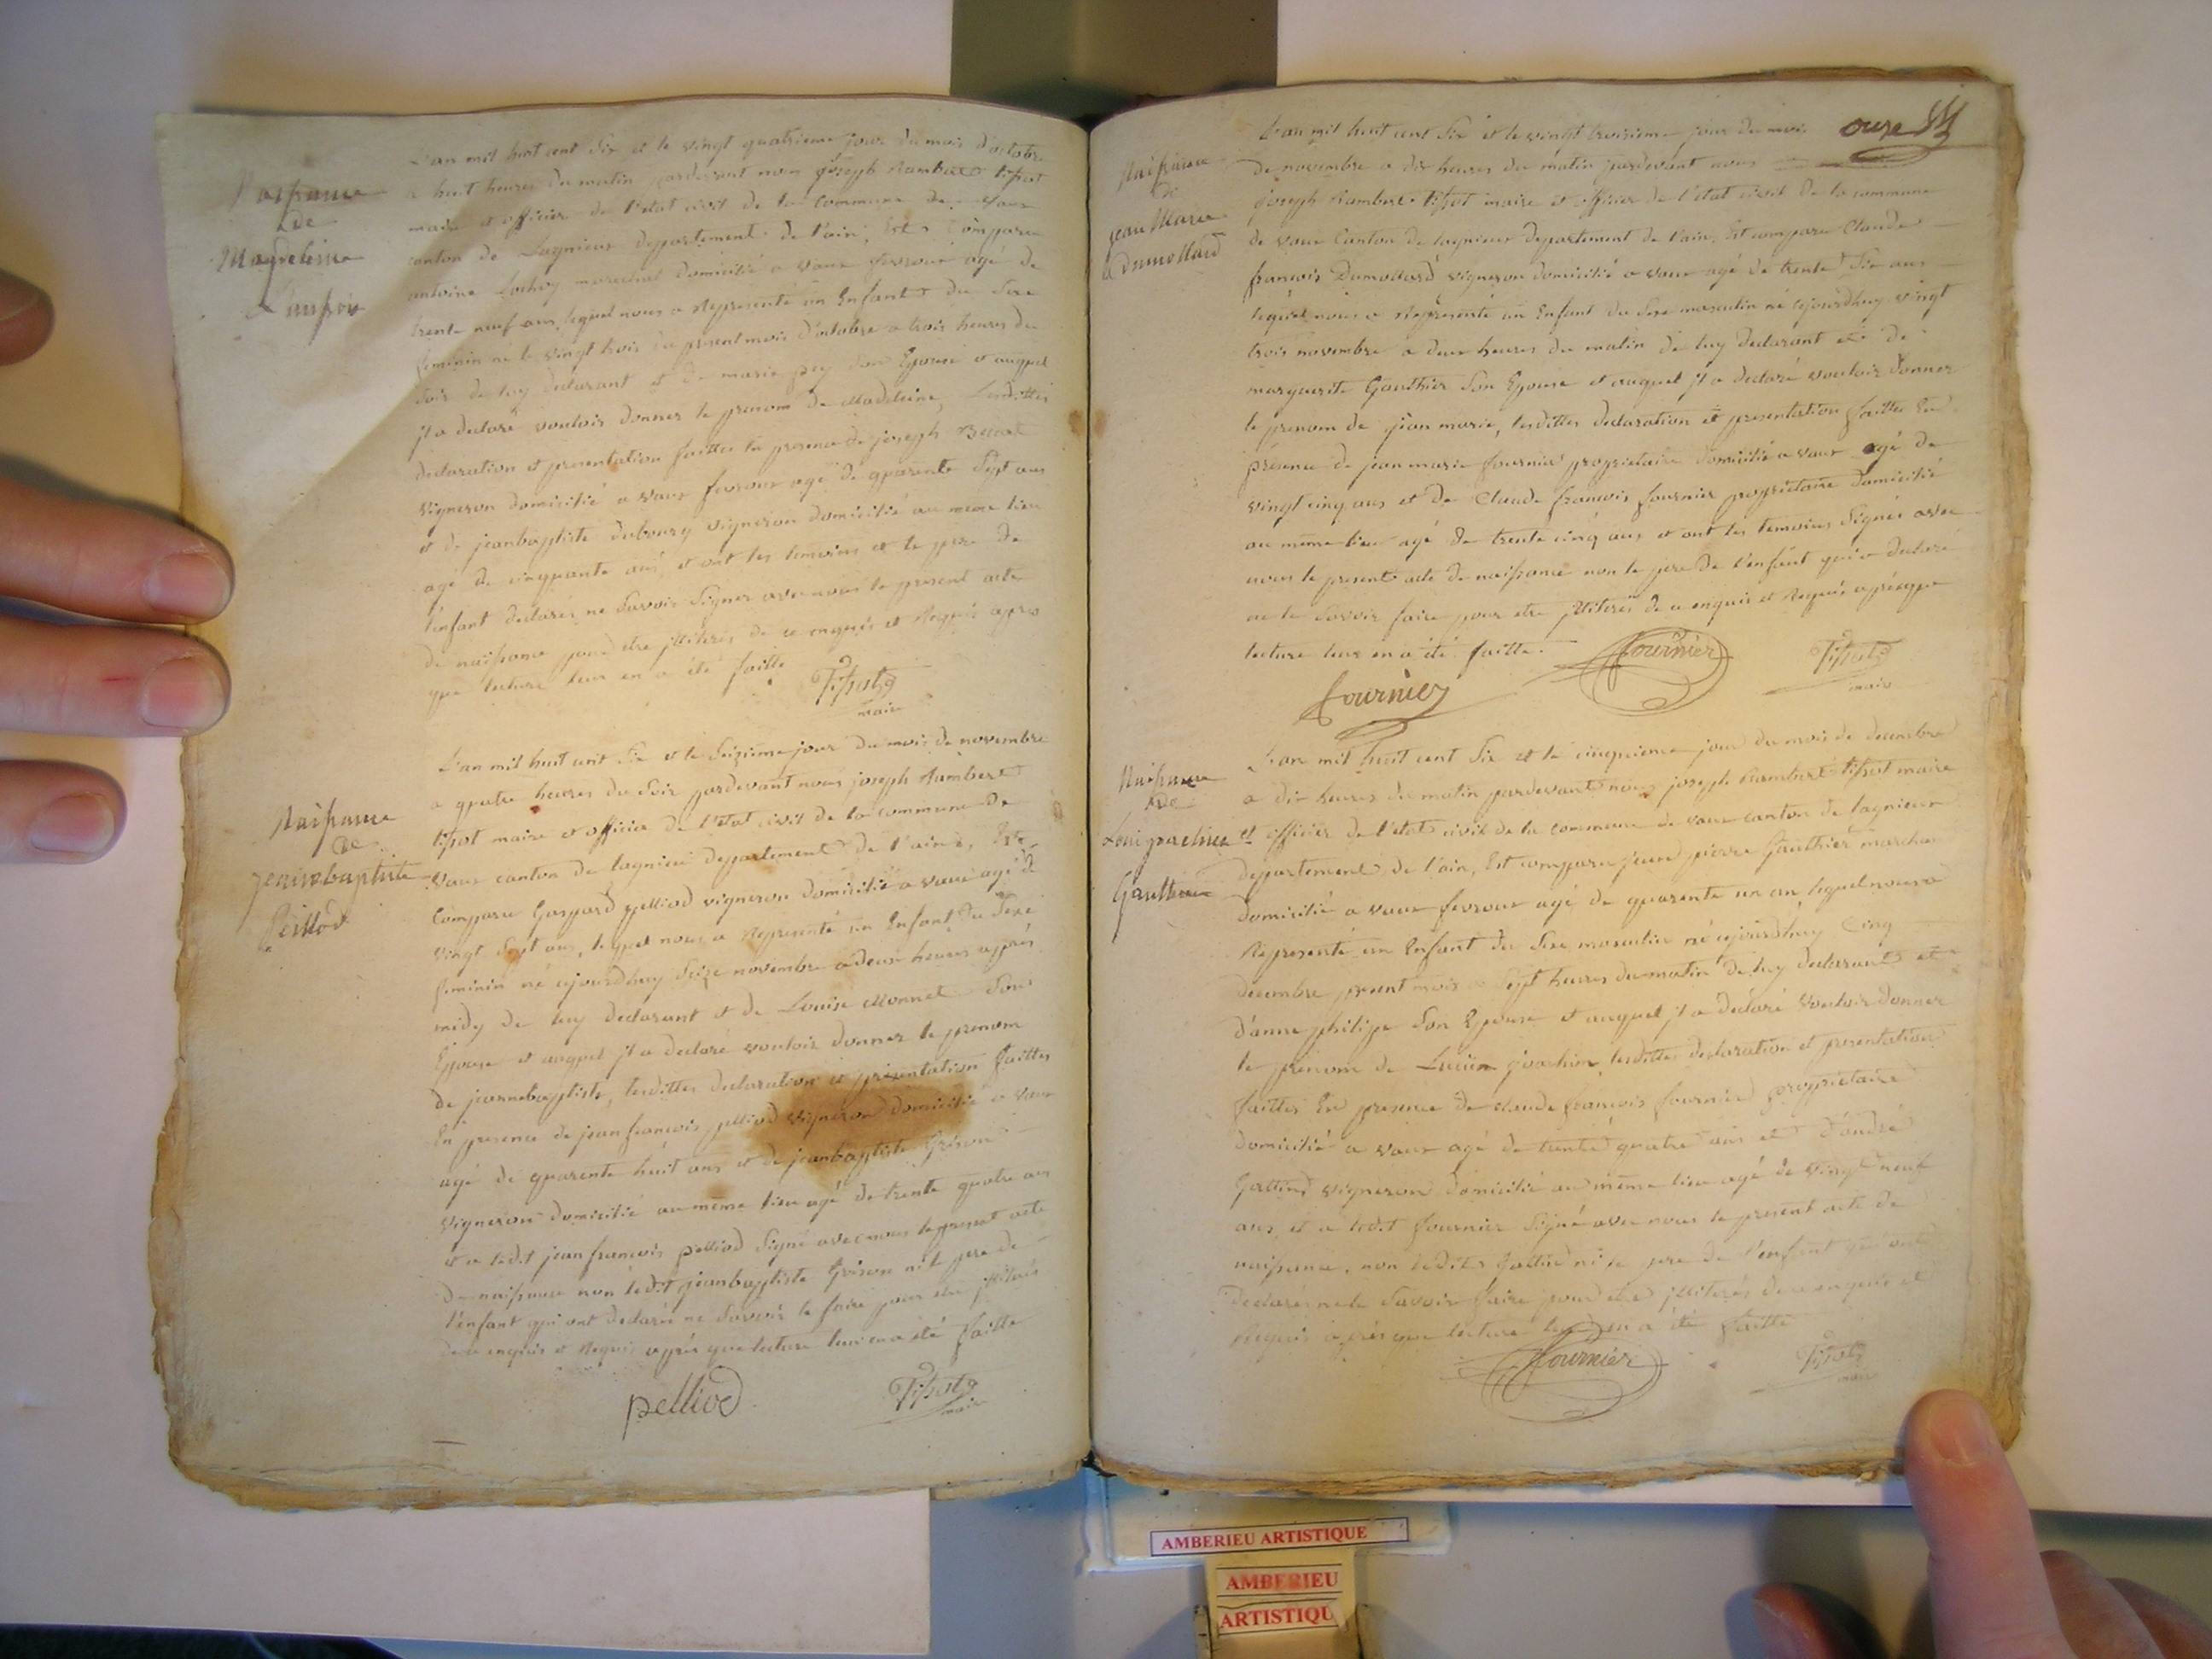 Naissance
de
Magdeleine
L'an mil huit cent six et le vingt quatrieme jour du mois d'octobre
a huit heures du matin pardevant nous joseph Rambert tissot
maire et officier de l'etat civil de la commune de vaux
canton de Lagnieux departement de l'ain, Est comparu
antoine marechal domicilié a vaux fevroux agé de
trente neuf ans, lequel nous a Representé un Enfant du Sexe
feminin né le vingt trois du present mois d'octobre a trois heures du
soir de luy declarant et de marie pey son Epouse et auquel
jl a declaré vouloir donner le prenom de Madeleine, Lesdittes
declaration et presentation faittes En presence de joseph
vigneron domicilié a vaux fevroux agé de quarente Sept ans
et de jeanbaptiste dubourg vigneron domicilié au meme lieu
agé de cinquante ans, et ont les temoins et le pere de
l'enfant declarés ne Savoir Signer avec nous le present acte
de naissance pour etre jlliterés de ce enquis et Requis apres
que lecture leur en a été faitte
Tissot
maire
Naissance
de
jeannebaptiste
Peillod
L'an mil huit cent Six et le Seizieme jour du mois de novembre
a quatre heures du Soir pardevant nous joseph Rambert
tissot maire et officier de l'etat civil de la commune de
vaux canton de lagnieu departement de l'ain, Est
Comparu Gaspard pelliod vigneron domicilié a vaux agé de
vingt Sept ans, lequel nous a Representé un Enfant du Sexe
feminin né cejourdhuy Seize novembre a deux heures après
midy de luy declarant et de Louise Monnet Son
Epouse et auquel jl a declaré vouloir donner le prenom
de jeannebaptiste, lesdittes declaration et présentation faittes
En presence de jean françois pelliod vigneron domicilié a vaux
agé de quarente huit ans et de jeanbaptiste Grison
vigneron domicilié au même lieu agé de trente quatre ans
et a ledit jean francois pelliod Signé avec nous le present acte
de naissance non ledit jeanbaptiste Grison ni le pere de
l'enfant qui ont declarés ne Savoir le faire pour etre jlliterés
de ce enquis et Requis après que lecture leur en a été faitte
pelliod
Tissot
maire
onze
Naissance
de
jean Marie
dumollard
L'an mil huit cent Six et le vingt troisieme jour du mois
de novembre a dix heures du matin pardevant nous
joseph Rambert tissot maire et officier de l'etat civil de la commune
de vaux Canton de lagnieux departement de l'ain, Est comparu Claude
françois Dumollard vigneron domicilié a vaux agé de trente Six ans
lequel nous a Représenté un Enfant du Sexe masculin né cejourdhuy vingt
trois novembre a deux heures du matin de luy declarant et de
marguerite Gauthier Son Epouse et auquel jl a declaré vouloir donner
le prenom de jean marie, lesdittes declaration et presentation faittes En
présence de jean marie fournier proprietaire domicilié a vaux agé de
vingt cinq ans et de Claude françois fournier proprietaire domicilié
au même lieu agé de trente cinq ans et ont les temoins Signés avec
nous le present acte de naissance non le pere de l'enfant qui a declaré
ne le Savoir faire pour etre jlliteré de ce enquis et Requis après que
lecture leur en a été faitte.
fournier
fournier
Tissot
maire
Naissance
de
Gauthier
L'an mil huit cent Six et le cinquieme jour du mois de decembre
a dix heures du matin pardevant nous joseph Rambert tissot maire
et officier de l'etat civil de la commune de vaux canton de lagnieux
departement de l'ain, Est comparu jean pierre Gauthier marchand
domicilié a vaux fevroux agé de quarente un an, lequel nous a
Representé un Enfant du Sexe masculin né cejourdhuy Cinq
decembre present mois a Sept heures du matin de luy declarant et
d'anne philipe Son Epouse et auquel jl a declaré vouloir donner
le prenom de Lucien joachim, lesdittes declaration et presentation
faittes En presence de claude françois fournier proprietaire
domicilié a vaux agé de trente quatre ans et d'andré
vigneron domicilié au même lieu agé de vingt neuf
ans, et a ledit fournier Signé avec nous le present acte de
naissance, non ledit ni le pere de l'enfant qui ont
declarés ne le Savoir faire pour etre jlliterés de ce enquis et
Requis après que lecture leur en a été faitte
fournier
Tissot
maire
AMBERIEU ARTISTIQUE
AMBERIEU
ARTISTIQU